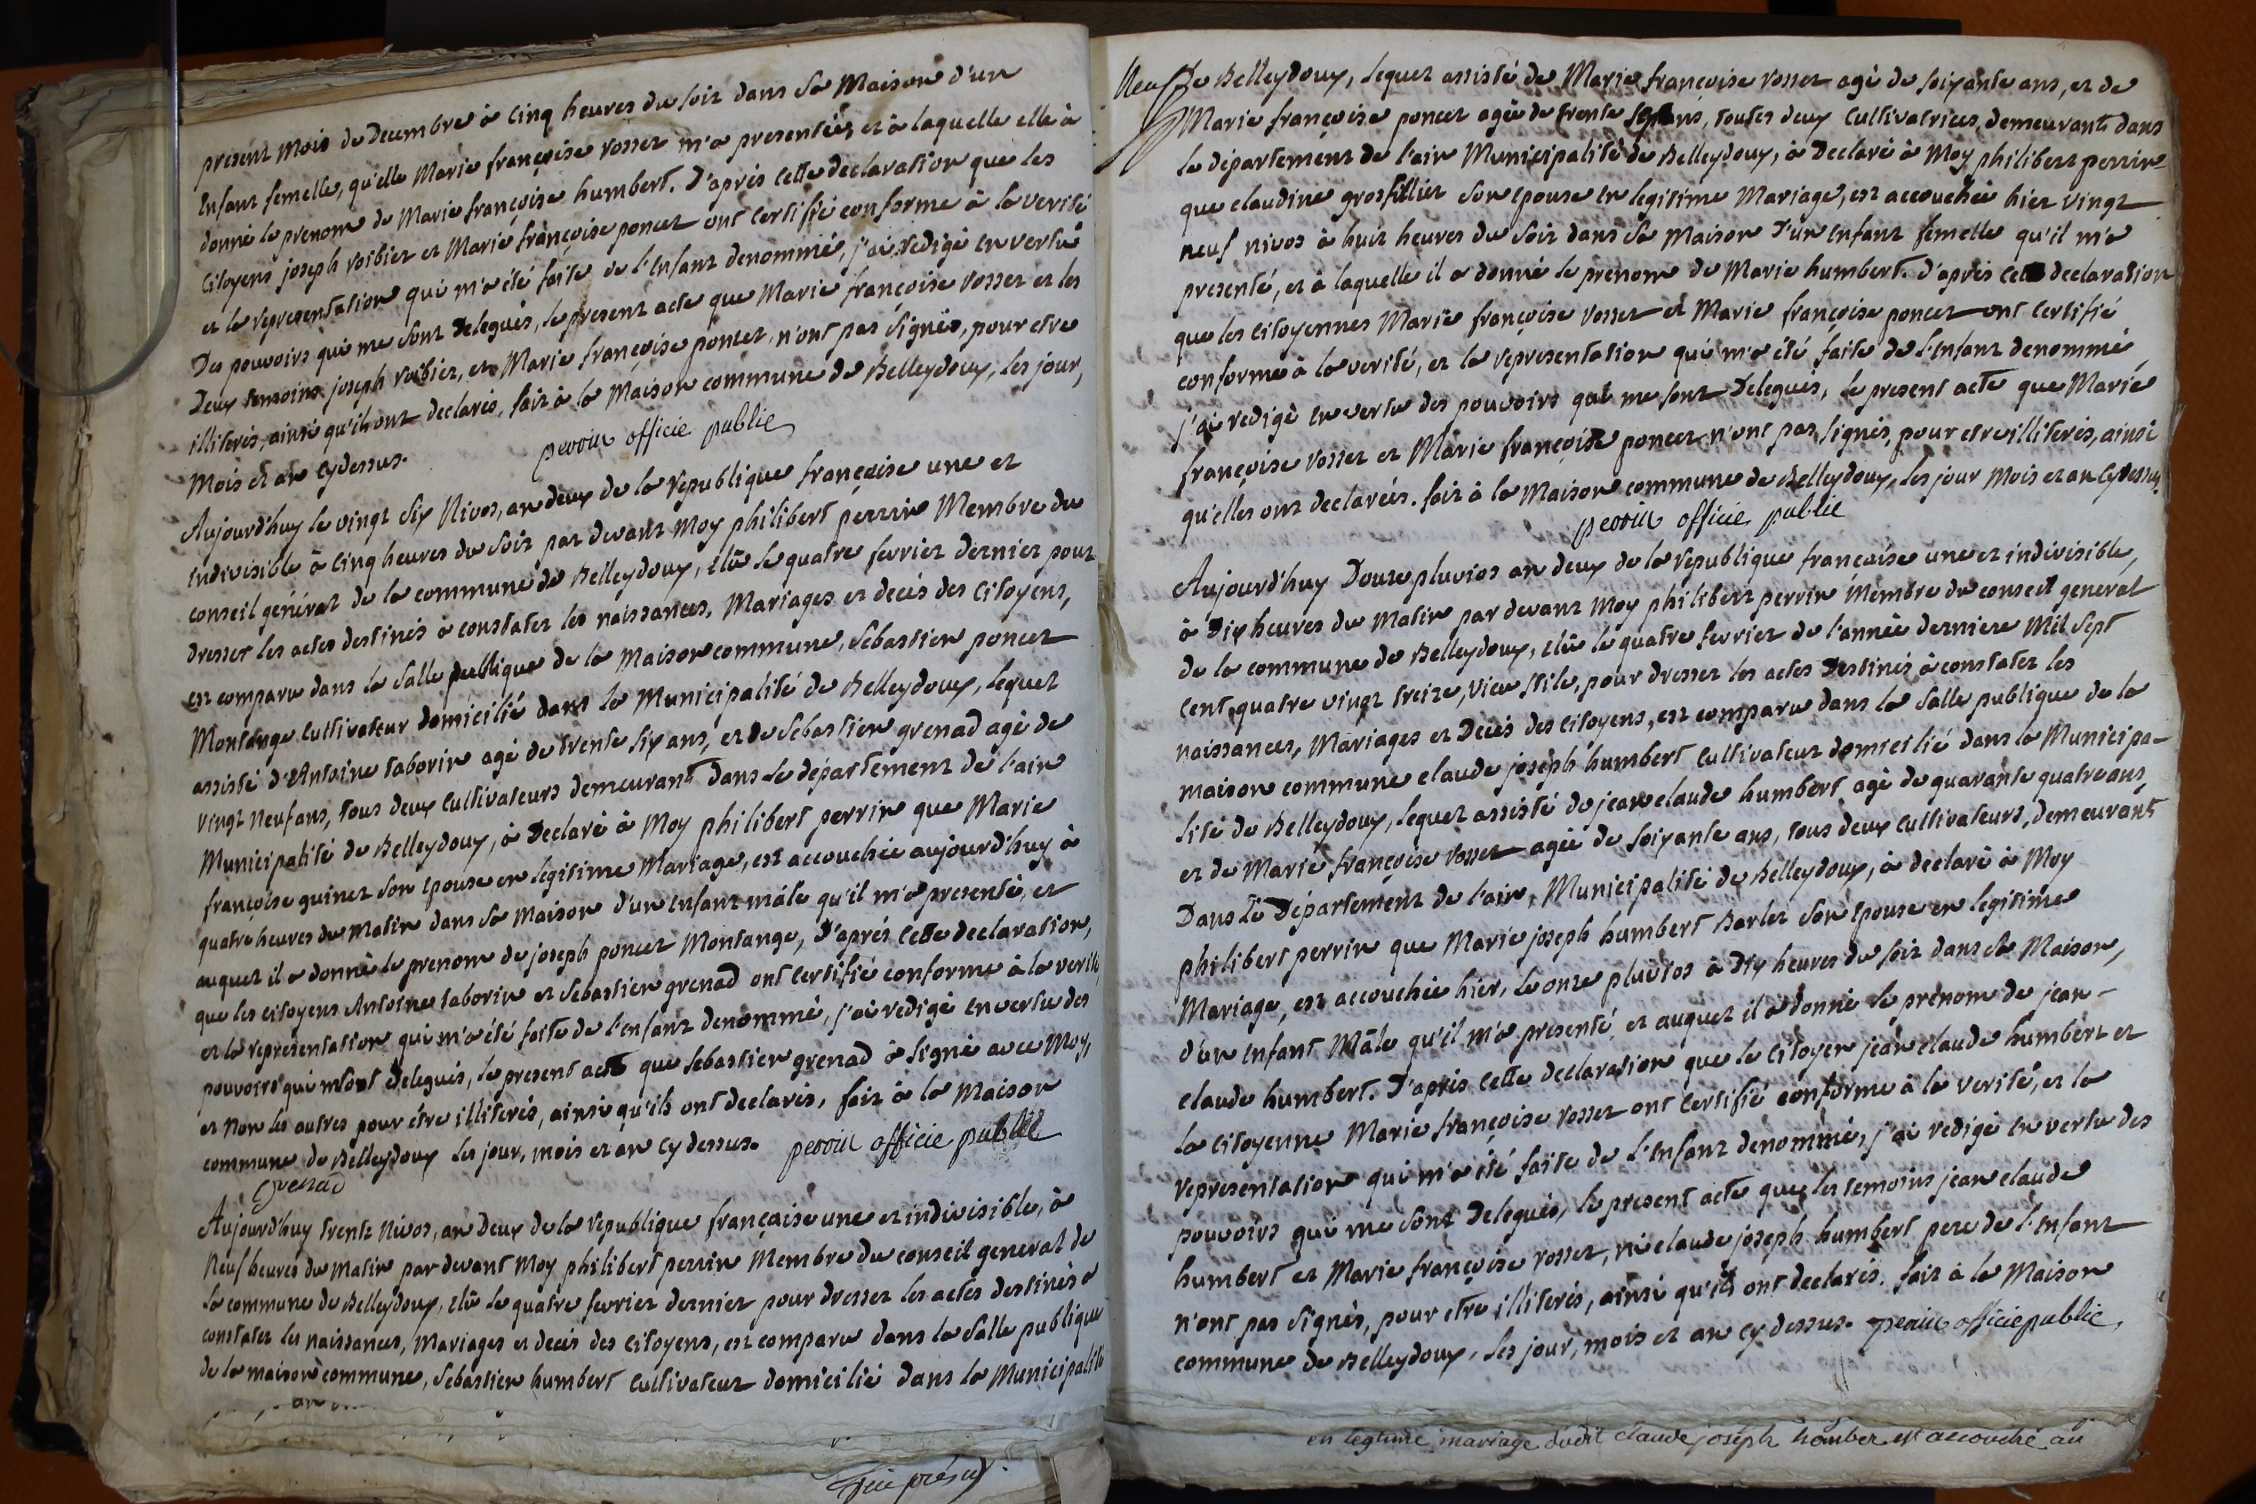 present mois de decembre à cinq heures du soir dans sa Maison d'un
Enfant femelle, qu'elle Marie françoise rosset m'a presentée, et à laquelle elle à
donné le prenom de Marie françoise humbert. D'après cette declaration que les
Citoyens joseph roibier et Marie françoise poncet ont certifié conforme à la verité
et la representation qui m'a été faite de l'Enfant denommé, j'ai redigé en vertu
Des pouvoirs qui me sont Delegués, le present acte que Marie françoise rosset et les
Deux temoins joseph roibier, et Marie françoise poncet, n'ont pas signés, pour etre
illiterés, ainsi qu'ils ont declarés, fait à la Maison commune de Belleydoux, les jour,
Mois et an cydessus. perrin officie public
Aujourd'huy le vingt six Nivos, an deux de la republique françoise une et
indivisible à cinq heures du soir par devant Moy philibert perrin Membre du
conseil général de la commune de Belleydoux, elû le quatre fevrier dernier pour
dresser les actes destinés à constater les naissances, Mariages et decès des Citoyens,
est comparu dans la salle publique de la maison commune, sebastien poncet
Montange cultivateur domicilié dans la Municipalité de Belleydoux, lequel
assisté d'Antoine taborin agé de trente six ans, et de sebastien grenad agé de
vingt neuf ans, tous deux cultivateurs demeurant dans le département de l'ain
Municipalité de Belleydoux, à Declaré à Moy philibert perrin que Marie
françoise guinet son Epouse en legitime Mariage, est accouchée aujourd'huy à
quatre heures du matin dans sa maison d'un enfant mâle qu'il m'a presenté, et
auquel il a donné le prenom de joseph poncet Montange, D'après cette declaration,
que les citoyens Antoine taborin et sebastien grenad ont certifié conforme à la verité,
et la representation qui m'a été faite de l'enfant denommé, j'ai redigé en vertu des
pouvoirs qui m'sont Delegués, le present acte que sebastien grenad à signé avec Moy,
et Non les autres pour être illiterés, ainsi qu'ils ont declarés, fait à la Maison
commune de Belleydoux les jour, mois et an cy dessus. perrin officie public
Grenad
Aujourd'huy trente Nivos, an Deux de la republique françaïse une et indivisible, à
Neuf heures du matin par devant Moy philibert perrin Membre du conseil general de
la commune de Belleydoux, elû le quatre fevrier dernier pour dresser les actes destinés à
constater les naissances, Mariages et decès des citoyens, est comparu dans la salle publique
de la maison commune, sebastien humbert cultivateur domicilié dans la Municipalité
Neuf de Belleydoux, lequel assisté de Marie françoise rosset agé de soixante ans, et de
Marie françoise poncet agée de trente ans, toutes deux Cultivatrices, demeurants dans
le département de l'ain Municipalité de Belleydoux, à Declaré à Moy philibert perrin
que claudine grosfillier son epouse en legitime Mariage, est accouchée hier vingt
neuf nivos à huit heures du soir dans sa maison d'un enfant femelle qu'il m'a
presenté, et à laquelle il a donné le prenom de Marie humbert. d'après cette declaration
que les citoyennes Marie françoise rosset et Marie françoise poncet ont certifié
conforme à la verité, et la representation qui m'a été faite de l'Enfant denommé
j'ai redigé en vertu des pouvoirs qui me sont Delegués, le present acte que Marie
françoise rosset et Marie françoise poncet n'ont pas signés, pour etre illiterés, ainsi
qu'elles ont declarées. fait à la Maison commune de Belleydoux, les jour Mois et an Cydessus.
perrin officie public
Aujourd'huy Douze pluvios an deux de la republique francaise une et indivisible,
à Dix heures du matin par devant Moy philibert perrin Membre du conseil general
de la commune de Belleydoux, elû le quatre fevrier de l'année derniere Mil sept
Cent quatre vingt treize, vieu stile, pour dresser les actes Destinés à constater les
naissances, Mariages et Decès des citoyens, est comparu dans la salle publique de la
maison commune claude joseph humbert Cultivateur domicilié dans la Municipa-
lité de Belleydoux, lequel assisté de jean claude humbert agé de quarante quatre ans
et de Marie françoise rosset agée de soixante ans, tous deux cultivateurs, demeurant
Dans le Departement de l'ain, Municipalité de Belleydoux, à declaré à Moy
philibert perrin que Marie joseph humbert Barlet son epouse en legitime
Mariage, est accouchée hier, le onze pluvios à Dix heures du soir dans sa Maison,
d'un Enfant Mâle qu'il m'a presenté, et auquel il a donné le prenom de jean-
claude humbert. D'après cette declaration que le citoyen jean claude humbert et
la citoyenne Marie françoise rosset ont certifié conforme à la verité, et la
representation qui m'a été faite de l'Enfant denommé, j'ai redigé en vertu des
pouvoirs qui me sont Delegués, le present acte que les temoins jean claude
humbert et Marie françoise rosset, ni claude joseph humbert pere de l'Enfant
n'ont pas signés, pour etre illiterés, ainsi qu'ils ont declarés. fait à la Maison
commune de Belleydoux, les jour, mois et an cy dessus. perrin officie public
en legtime mariage dudit claude joseph humber est accouché au